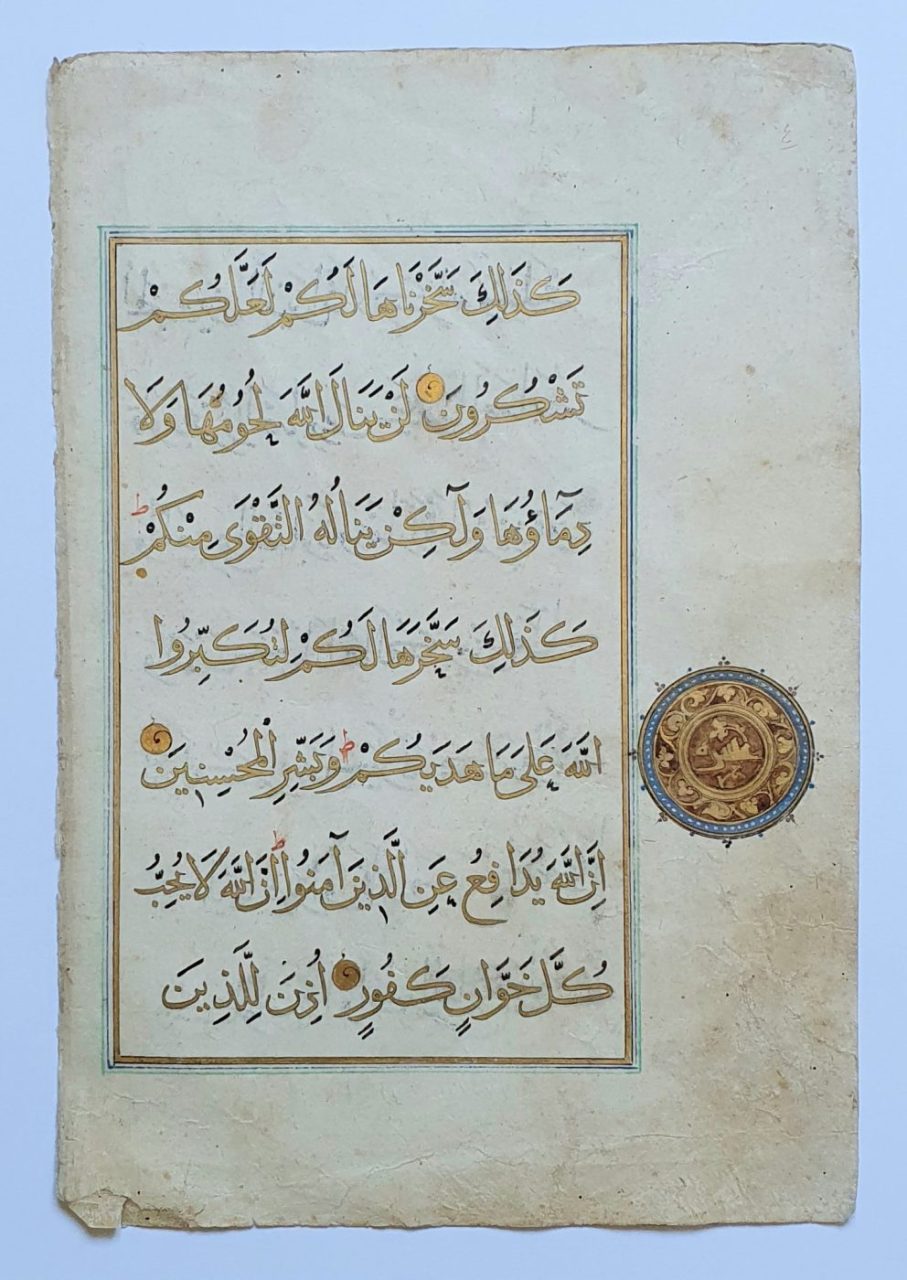 كَذَلِكَ سَخَّرْنَاهَا لَكُمْ لَعَلَّكُمْ
تَشْكُرُونَ لَنْ يَنَالَ اللَّهَ لُحُومُهَا وَلَا
دِمَآؤُهَا وَلَٰكِنْ يَنَالُهُ التَّقْوَى مِنْكُمْ ط
كَذَلِكَ سَخَّرَهَا لَكُمْ لِتُكَبِّرُوا
اللَّهَ عَلَى مَا هَدَيكُمْ ط وَبَشِّرِ الْمُحْسِنِينَ
إِنَّ اللَّهَ يُدَافِعُ عَنِ الَّذِينَ آمَنُوا ط إِنَّ اللَّهَ لَا يُحِبُّ
كُلَّ خَوَّانٍ كَفُورٍ أُذِنَ لِلَّذِينَ